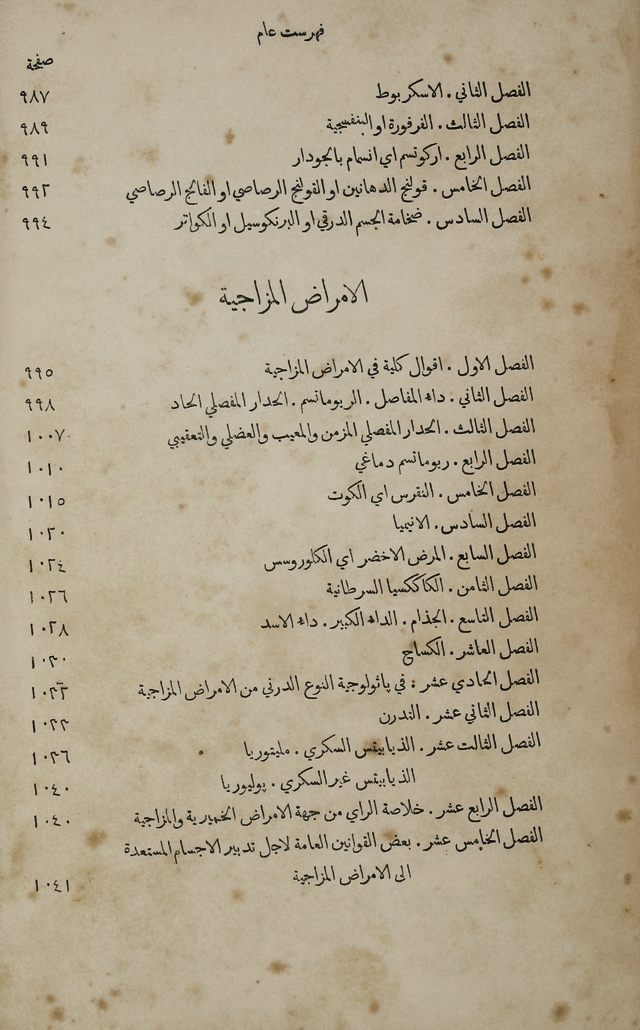 فهرست عام
صفحة
الفصل الثاني . الاسكربوط ٩٨٧
الفصل الثالث . الفرفورة او البنفسجية ٩٨٩
الفصل الرابع . اركوتسم اي انسمام بالجودار ٩٩١
الفصل الخامس . قولنج الدهانين او القولنج الرصاصي او الفالج الرصاصي ٩٩٢
الفصل السادس . ضخامة الجسم الدرقي او البرنكوسيل او الكواتر ٩٩٤
الامراض المزاجية
الفصل الاول . اقوال كلية في الامراض المزاجية ٩٩٥
الفصل الثاني . داء المفاصل . الريوماتسم . الحدار المفصلي الحاد ٩٩٨
الفصل الثالث . الحدار المفصلي المزمن والمعيب والعضلي والتعقيبي ١٠٠٧
الفصل الرابع . ريوماتسم دماغي ١٠١٠
الفصل الخامس . النقرس اي الكوت ١٠١٥
الفصل السادس . الانيميا ١٠٢٠
الفصل السابع . المرض الاخضر اي الكلوروسس ١٠٢٤
الفصل الثامن . الكاككسيا السرطانية ١٠٢٦
الفصل التاسع . الجذام . الداء الكبير . داء الاسد ١٠٢٨
الفصل العاشر . الكساح
الفصل الحادي عشر . في پاثولوجية النوع الدرني من الامراض المزاجية
الفصل الثاني عشر . التدرن
الفصل الثالث عشر . الذيابيتس السكري . مليتوريا ١٠٣٦
الذيابيتس غير السكري . پوليوريا ١٠٤٠
الفصل الرابع عشر . خلاصة الراي من جهة الامراض الخميرية والمزاجية ١٠٤٠
الفصل الخامس عشر . بعض القوانين العامة لاجل تدبير الاجسام المستعدة
الى الامراض المزاجية ١٠٤١